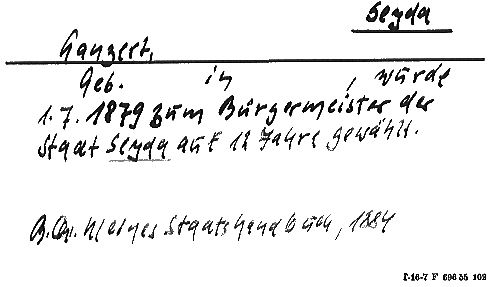 Seyda
Ganzert,
Geb. in , wurde
1.7.1879 zum Bürgermeister der
Stadt Seyda auf 12 Jahre gewählt.
Staatshandbuch, 1884
I-16-7 F 696 55 102